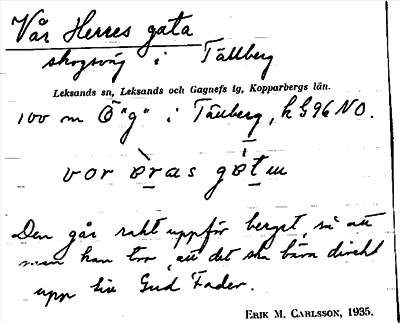 Vår Herres gata
skogsväg i Tällberg
Leksands sn, Leksands och Gagnefs tg, Kopparbergs län.
100 m Ö "g" i Tällberg, k G96 NO.
vor æras gåtu
Den går rakt uppför berget, så att
man kan tro, att det ska bära direkt
upp till Gud Fader.
ERIK M. CARLSSON, 1935.